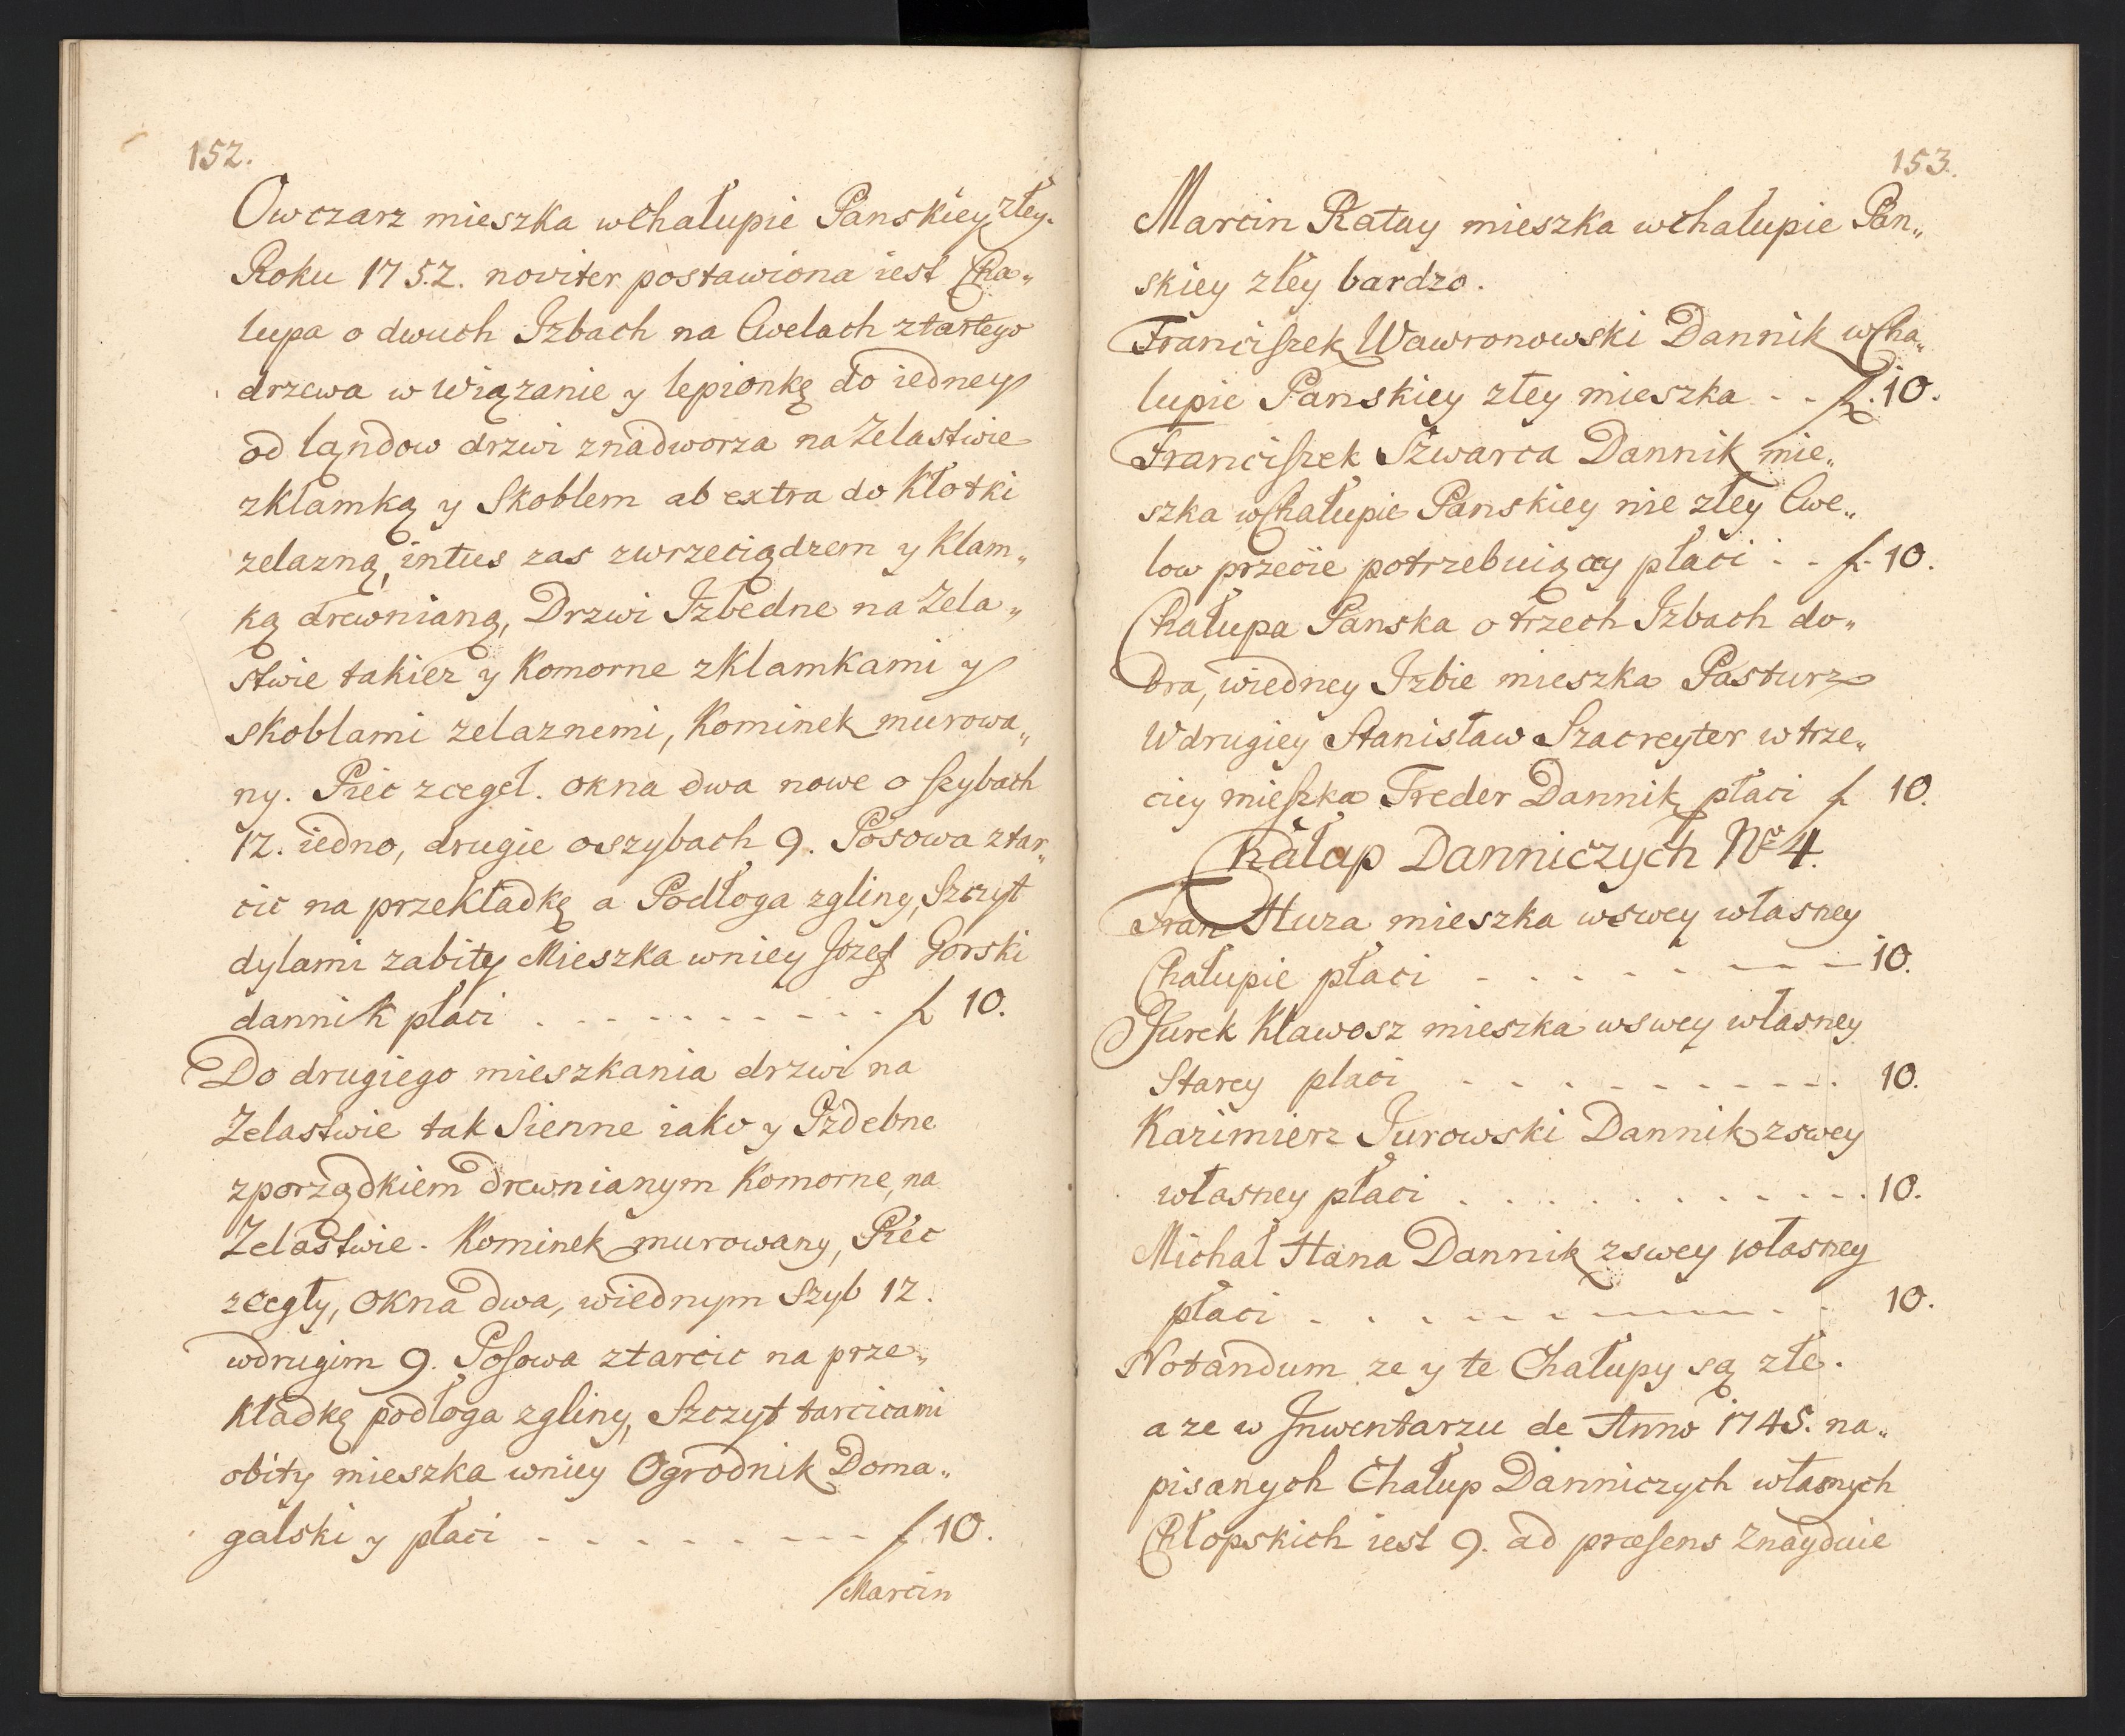 152.
Owczarz mieszka wChałupie Panskiey złey.
Roku 1752. noviter postawiona iest Cha„
lupa o dwuch Izbach na Cwelach ztartego
drzewa w Wiązanie y lepionkę do iedney
od Ląndow drzwi znadworza na Zelastwie
zklamką y Skoblem ab extra do Kłotki
zelazną, intus zas zwrzeciądzem y Klam„
ką drewnianą, Drzwi Izbedne na Zela„
stwie takiez y Komorne zKlamkami y
skoblami zelaznemi, Kominek murowa„
ny. Piec zcegeł. okna dwa nowe o szybach
12. iedno, drugie oszybach 9. Posowa ztar„
cic na przekładkę a Podłoga zgliny, Szczyt
dylami zabity Mieszka wniey Jozef Gorski
dannik płaci . . . . . . . . . . . f 10.
Do drugiego mieszkania drzwi na
Zelastwie tak Sienne iako y Izdebne
zporządkiem drewnianym Komorne, na
Zelastwie. Kominek murowany, Piec
zcegły, okna dwa, wiednym Szyb 12.
wdrugim 9. Posowa ztarcic na prze„
kładkę podłoga zgliny, Szczyt tarcicami
obity mieszka wniey Ogrodnik Doma„
galski y płaci - - - - - - - - - f 10.
Marcin
153.
Marcin Ratay mieszka wchałupie Pan„
skiey złey bardzo.
Franciszek Wawronowski Dannik wCha„
lupie Panskiey złey mieszka - - f. 10.
Franciszek Szwarca Dannik mie„
szka wChałupie Panskiey nie złey Cwe„
low przecie potrzebuiącey płaci - - f. 10.
Chałupa Panska o trzech Izbach do„
bra, wiedney Izbie mieszka Pasturz
Wdrugiey Stanisław Szacreyter w trze„
ciey mieszka Freder Dannik płaci f 10.
Chałup Danniczych No 4.
Fran Hura mieszka wswey własney
Chałupie płaci - - - - - - - - - 10.
Jurek Kławosz mieszka wswey własney
Starey placi - - - - - - - - - - 10.
Kazimierz Jurowski Dannik zswey
własney płaci . . . . . . . . . . . . 10.
Michał Hana Dannik zswey własney
płaci - - - - - - - - - - - - 10.
Notandum ze y te Chałupy są złe.
a ze w Inwentarzu de Anno 1745. na„
pisanych Chałup Danniczych własnych
Chłopskich iest 9. ad præsens Znayduie